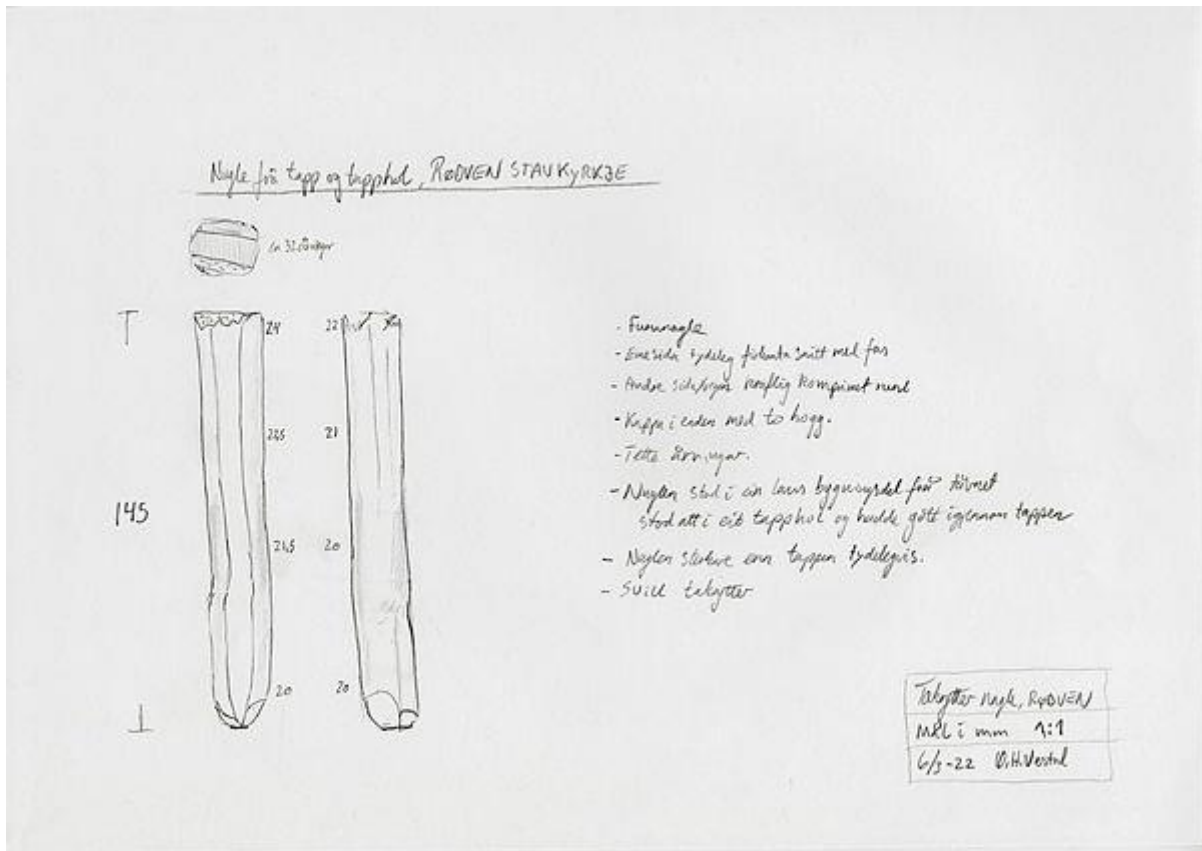 Nagle frå tapp og tapphol, RØDVEN STAVKYRKJE
ca 32 årringar
24
22
22,5
21
145
21,5
20
20
20
- Furunagle
- Eine sida tydeleg firkanta snitt med fas
- Andre sida kraftig komprimert rund
- Kappa i enden med to hogg.
- Tette årringar.
- Naglen stod i ein laus bygningsdel frå tårnet
stod att i eit tapphol og hadde gått igjennom tappen
- Naglen sterkare enn tappen tydelegvis.
- Svill takrytter
Takrytter nagle, RØDVEN
Mål i mm 1:1
6/3-22 Ø.H.Vestad